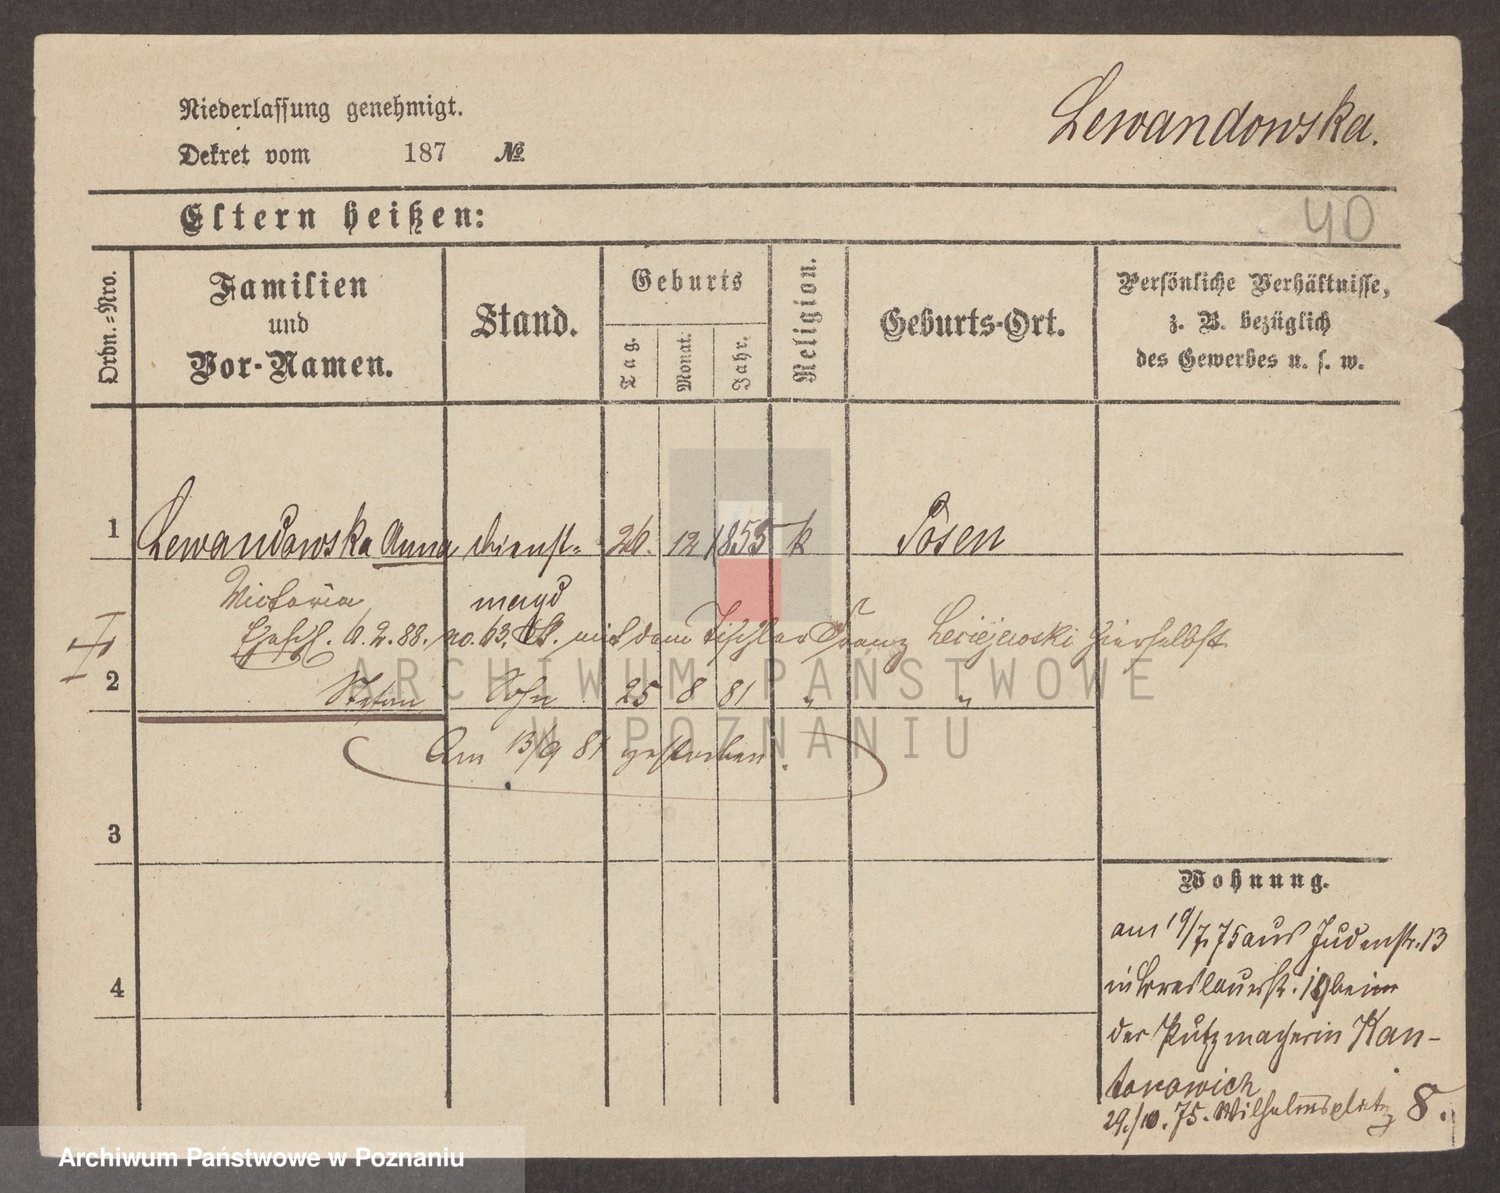 Niederlassung genehmigt.
Lewandowska.
Dekret vom 187 №
Eltern heißen:
40
Ordn.=Nro.
Familien
und
Vor-Namen.
Stand.
Geburts
Tag.
Monat.
Jahr.
Religion.
Geburts-Ort.
Persönliche Verhältnisse,
z. B. bezüglich
des Gewerbes u. s. w.
1 Lewandowska Anna Dienst= 26. 12 1855 k Posen
Victoria magd
Ehesch. 6.2.88. no. 63. mit dem Tischler Franz Leciejewski hierselbst
2 Stefan Sohn 25 8 81 " "
Am 13/9 81 gestorben.
3
4
Wohnung.
am 19/7 75 aus Judenstr. 13
in Breslauerstr. 19 beim
der Putzmacherin Kan-
torowicz
29/10. 75. Wilhelmsplatz 8.
ARCHIWUM PAŃSTWOWE
W POZNANIU
Archiwum Państwowe w Poznaniu